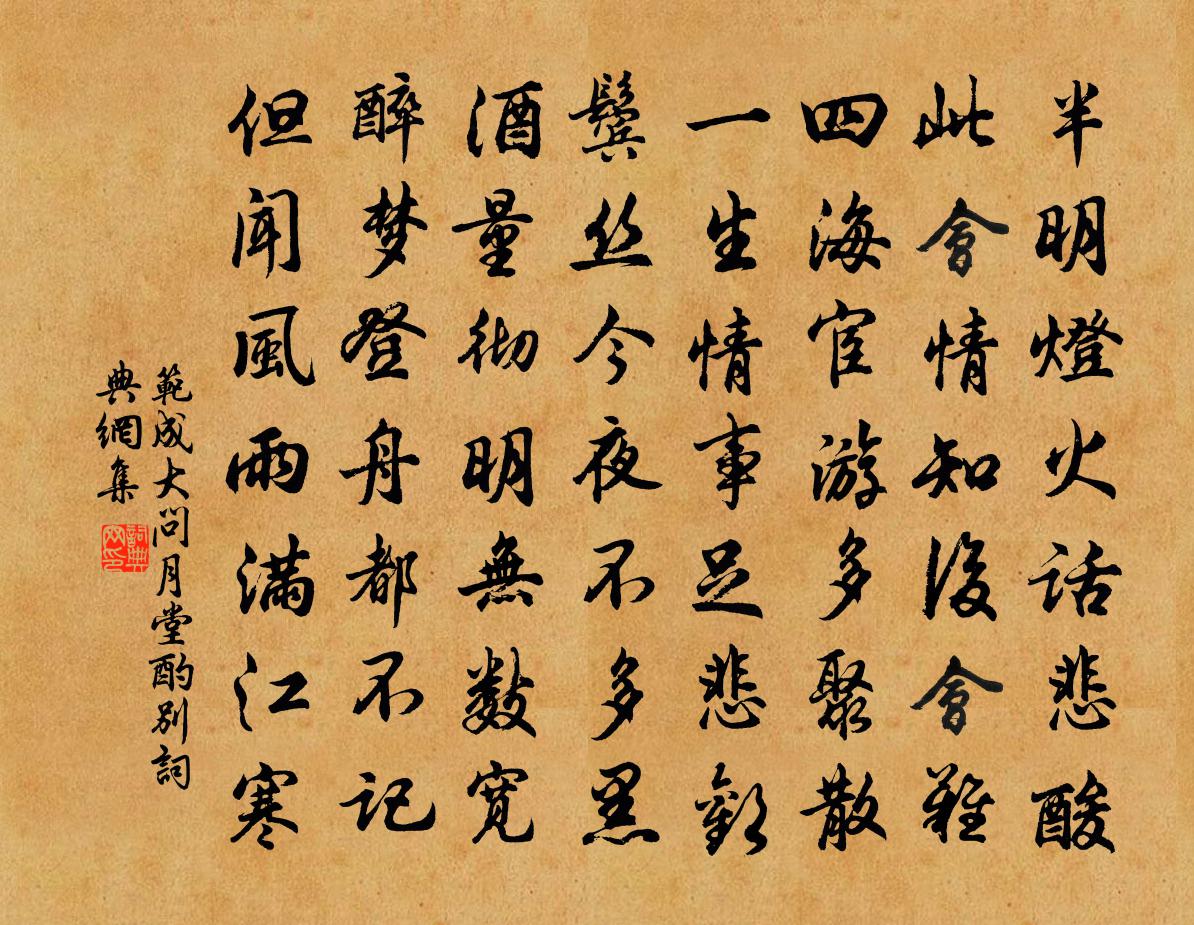 半明燈火話悲酸
此會情知後會難
四海宦游多聚散
一生情事足悲歡
鬢丝今夜不多黑
酒量彻明無數寬
醉梦登舟都不记
但聞風雨满江寒
範成大問月堂酌别詞
典網集
詞典
网印